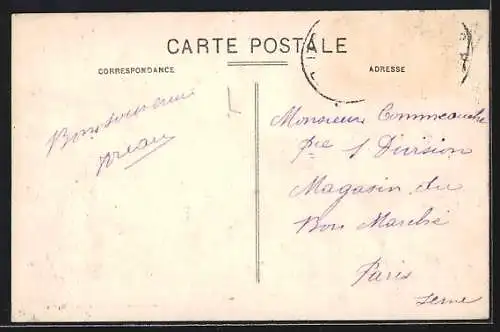 CARTE POSTALE
CORRESPONDANCE
ADRESSE
Bon souvenir
préau
Monsieur Commeauche
1 Division
Magasin du
Bon Marché
Paris
Seine